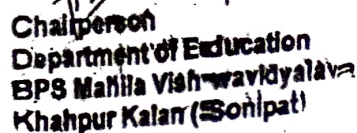 Chairperson
Department of Education
BPS Mahila Vishwavidyalaya
Khahpur Kalan (Sonipat)